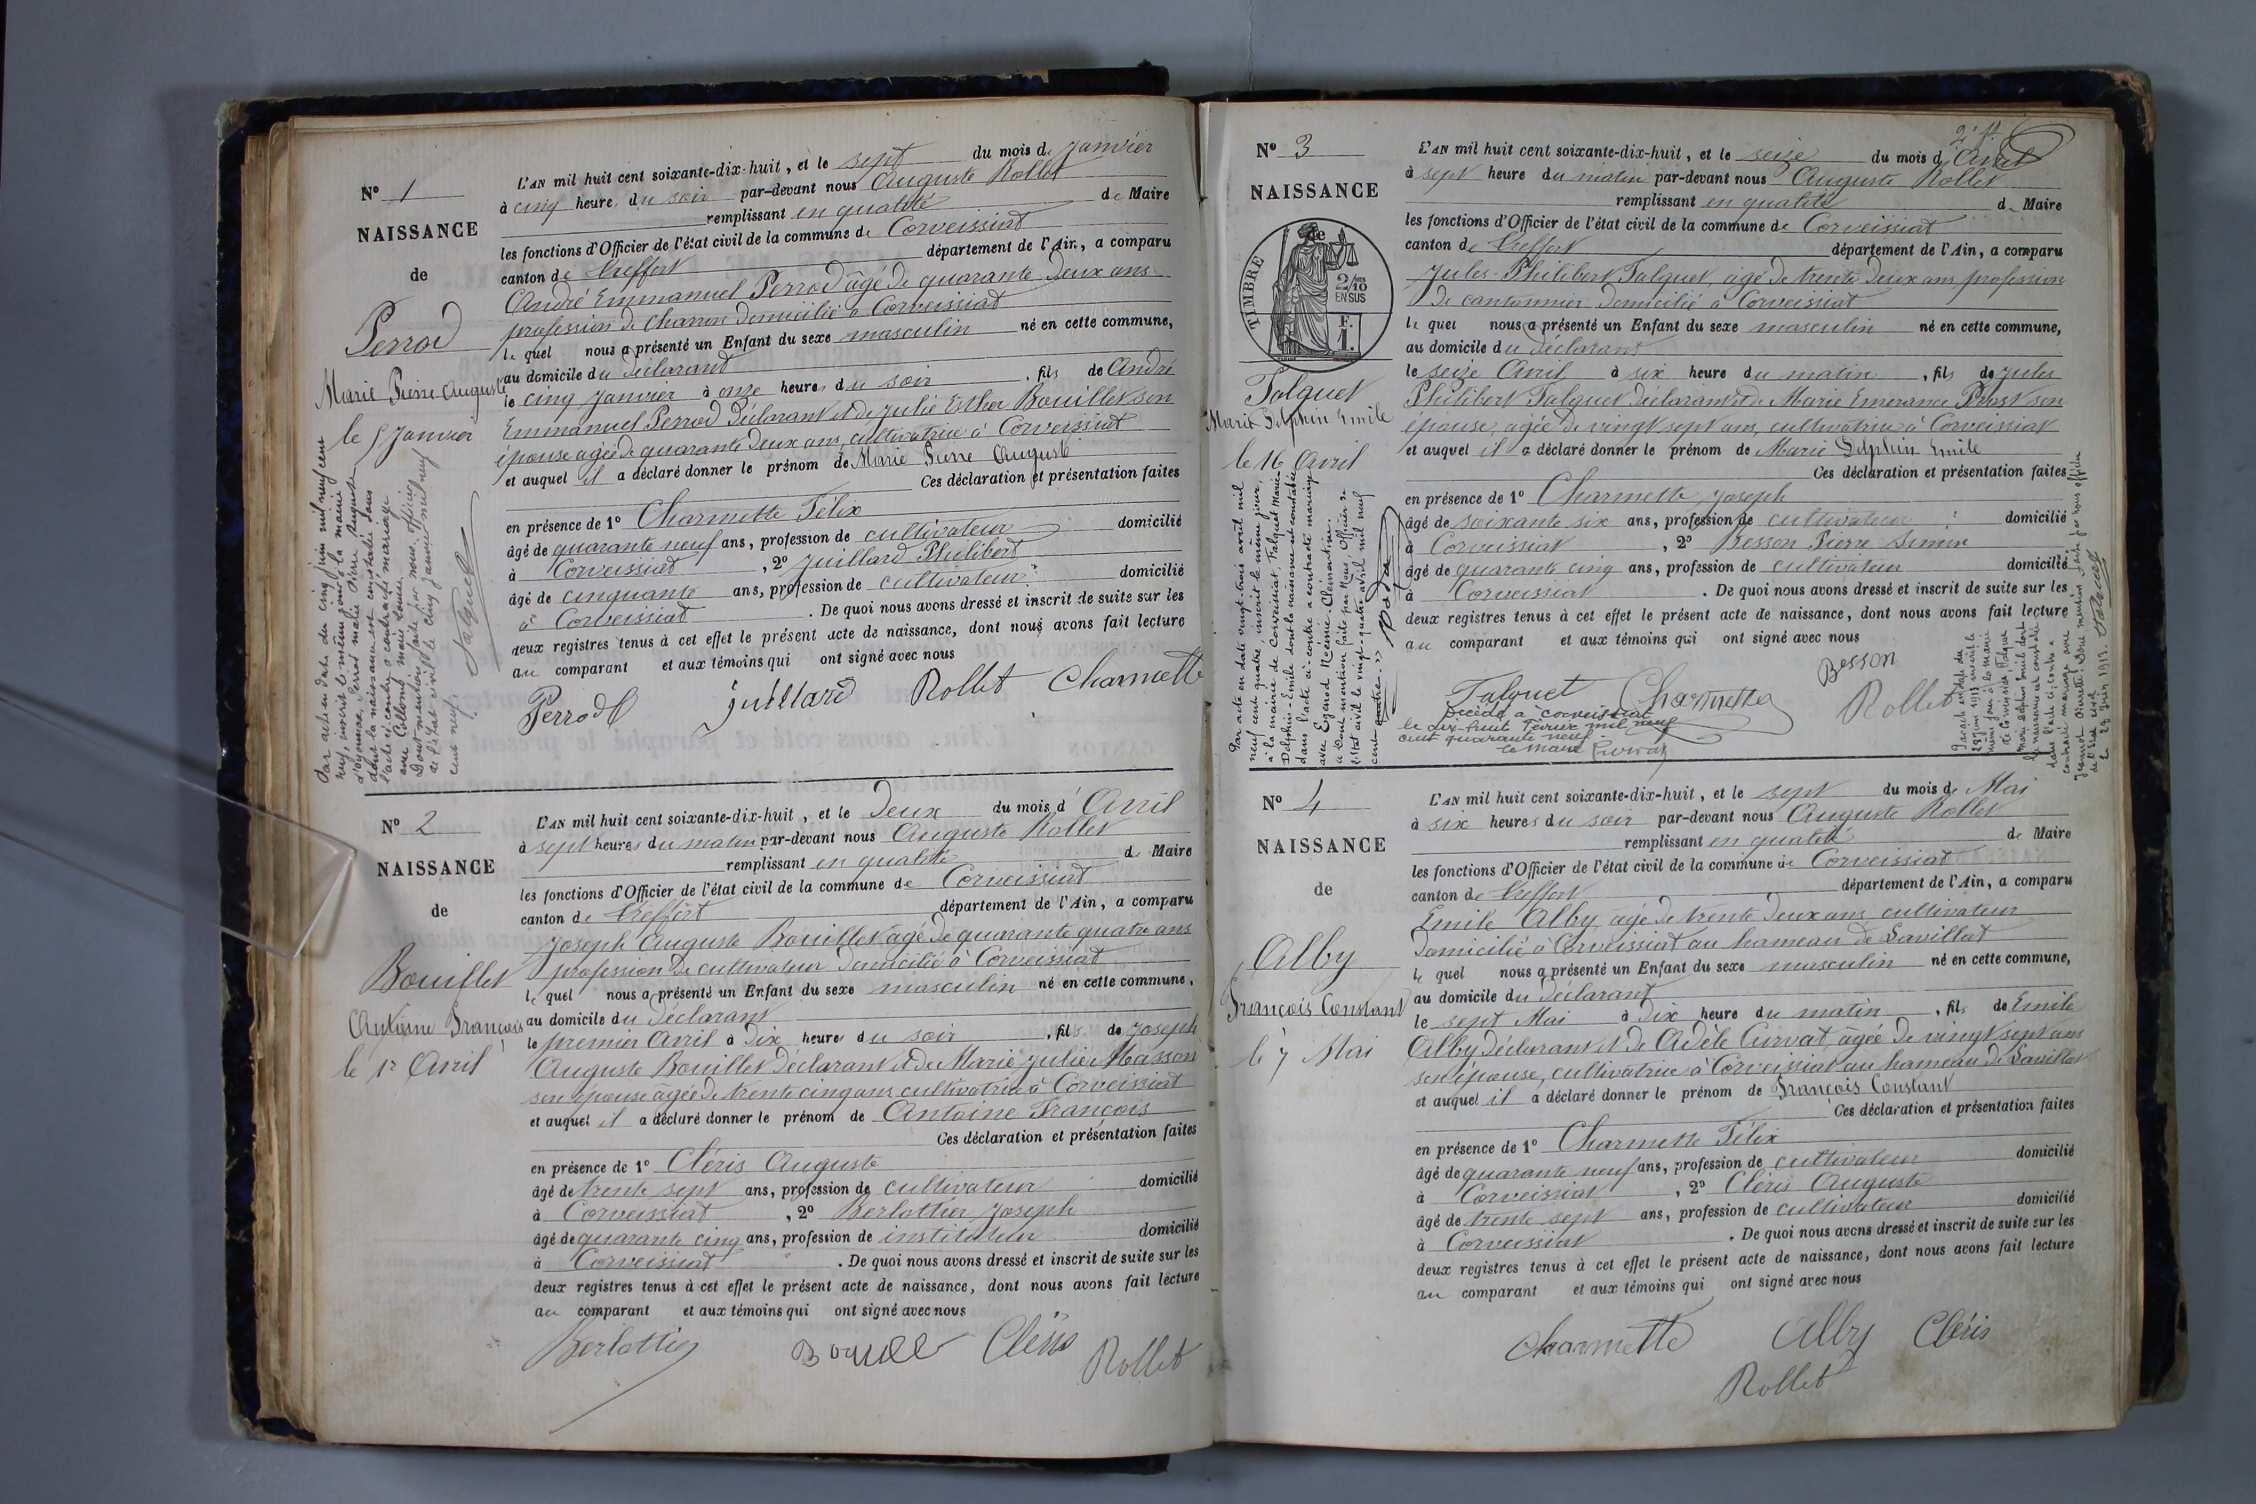 N° 1
NAISSANCE
de
Perrod
Marie Pierre Auguste
le 5 Janvier
Par acte en date du cinq juin mil neuf cent
neuf, inscrit le même jour à la mairie
d'oyonnax, Perrod Marie Pierre Auguste
dont la naissance est constatée dans
l'acte ci-contre, a contracté mariage
avec Collomb Marie Louise.
Dont mention faite par nous, officier
de l'état civil le cinq janvier mil neuf
cent neuf.
Falquet
L'AN mil huit cent soixante-dix-huit, et le sept du mois de Janvier
à cinq heures du soir par-devant nous Auguste Rollet
remplissant en qualité de Maire
les fonctions d'Officier de l'état civil de la commune de Corveissiat
canton de Treffort département de l'Ain, a comparu
André Emmanuel Perrod âgé de quarante deux ans
profession de charron domicilié à Corveissiat
le quel nous a présenté un Enfant du sexe masculin né en cette commune,
au domicile du déclarant
le cinq Janvier à onze heures du soir, fils de André
Emmanuel Perrod déclarant et de Julie Esther Bouillet son
épouse âgée de quarante deux ans, cultivatrice à Corveissiat
et auquel il a déclaré donner le prénom de Marie Pierre Auguste
Ces déclaration et présentation faites
en présence de 1° Charmette Félix
âgé de quarante neuf ans, profession de cultivateur domicilié
à Corveissiat, 2° Juillard Philibert
âgé de cinquante ans, profession de cultivateur domicilié
à Corveissiat. De quoi nous avons dressé et inscrit de suite sur les
deux registres tenus à cet effet le présent acte de naissance, dont nous avons fait lecture
au comparant et aux témoins qui ont signé avec nous
Perrod Juillard Rollet Charmette
N° 2
NAISSANCE
de
Bouillet
Antoine François
le 1r Avril
L'AN mil huit cent soixante-dix-huit, et le Deux du mois d'Avril
à sept heures du matin par-devant nous Auguste Rollet
remplissant en qualité de Maire
les fonctions d'Officier de l'état civil de la commune de Corveissiat
canton de Treffort département de l'Ain, a comparu
Joseph Auguste Bouillet âgé de quarante quatre ans
profession de cultivateur domicilié à Corveissiat
le quel nous a présenté un Enfant du sexe masculin né en cette commune,
au domicile du déclarant
le premier Avril à dix heures du soir, fils de Joseph
Auguste Bouillet déclarant et de Marie Julie Masson
son épouse âgée de trente cinq ans cultivatrice à Corveissiat
et auquel il a déclaré donner le prénom de Antoine François
Ces déclaration et présentation faites
en présence de 1° Cléris Auguste
âgé de trente sept ans, profession de cultivateur domicilié
à Corveissiat, 2° Berlottier Joseph
âgé de quarante cinq ans, profession de instituteur domicilié
à Corveissiat. De quoi nous avons dressé et inscrit de suite sur les
deux registres tenus à cet effet le présent acte de naissance, dont nous avons fait lecture
au comparant et aux témoins qui ont signé avec nous
Berlottier Bouillet Cléris Rollet
N° 3
NAISSANCE
de
TIMBRE
2/10
EN SUS
F.
1.
Falquet
Marie Delphin Emile
le 16 Avril
Par acte en date vingt-trois avril mil
neuf cent quatre, inscrit le même jour,
à la mairie de Corveissiat, Falquet Marie-
Delphin-Emile dont la naissance est constatée
dans l'acte ci-contre a contracté mariage
avec Noémie Clémentine.
Dont mention faite par Nous, Officier de
l'Etat civil le vingt-quatre avril mil neuf
cent quatre.
L'AN mil huit cent soixante-dix-huit, et le seize du mois d'Avril
à sept heure du matin par-devant nous Auguste Rollet
remplissant en qualité de Maire
les fonctions d'Officier de l'état civil de la commune de Corveissiat
canton de Treffort département de l'Ain, a comparu
Jules-Philibert Falquet, âgé de trente deux ans profession
de cantonnier domicilié à Corveissiat
le quel nous a présenté un Enfant du sexe masculin né en cette commune,
au domicile du déclarant
le seize Avril à six heure du matin, fils de Jules
Philibert Falquet déclarant et de Marie Emerance Prost son
épouse, âgée de vingt sept ans, cultivatrice à Corveissiat
et auquel il a déclaré donner le prénom de Marie Delphin Emile
Ces déclaration et présentation faites
en présence de 1° Charmette Joseph
âgé de soixante six ans, profession de cultivateur domicilié
à Corveissiat, 2° Besson Pierre Simon
âgé de quarante cinq ans, profession de cultivateur domicilié
à Corveissiat. De quoi nous avons dressé et inscrit de suite sur les
deux registres tenus à cet effet le présent acte de naissance, dont nous avons fait lecture
au comparant et aux témoins qui ont signé avec nous
Falquet Charmette Besson Rollet
Décédé à Corveissiat
le dix-huit Février mil neuf
cent quarante neuf
Le Maire
Par acte en date du
28 juin 1913 inscrit le
même jour à la mairie
de Corveissiat, Falquet
Marie Delphin Emile dont
la naissance est constatée
dans l'acte ci-contre a
contracté mariage avec
mention faite par nous officier
de l'état civil
Falquet
N° 4
NAISSANCE
de
Alby
François Constant
le 7 Mai
L'AN mil huit cent soixante-dix-huit, et le sept du mois de Mai
à six heures du soir par-devant nous Auguste Rollet
remplissant en qualité de Maire
les fonctions d'Officier de l'état civil de la commune de Corveissiat
canton de Treffort département de l'Ain, a comparu
Emile Alby âgé de trente deux ans cultivateur
domicilié à Corveissiat au hameau de Lavillat
le quel nous a présenté un Enfant du sexe masculin né en cette commune,
au domicile du déclarant
le sept Mai à dix heure du matin, fils de Emile
Alby déclarant et de Adèle Curvat, âgée de vingt sept ans
son épouse, cultivatrice à Corveissiat au hameau de Lavillat
et auquel il a déclaré donner le prénom de François Constant
Ces déclaration et présentation faites
en présence de 1° Charmette Félix
âgé de quarante neuf ans, profession de cultivateur domicilié
à Corveissiat, 2° Cléris Auguste
âgé de trente sept ans, profession de cultivateur domicilié
à Corveissiat. De quoi nous avons dressé et inscrit de suite sur les
deux registres tenus à cet effet le présent acte de naissance, dont nous avons fait lecture
au comparant et aux témoins qui ont signé avec nous
Charmette Alby Cléris
Rollet